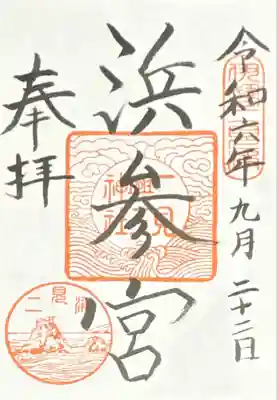 令和六年九月二十二日
浜参宮
奉拝
二見
神社
二見浦